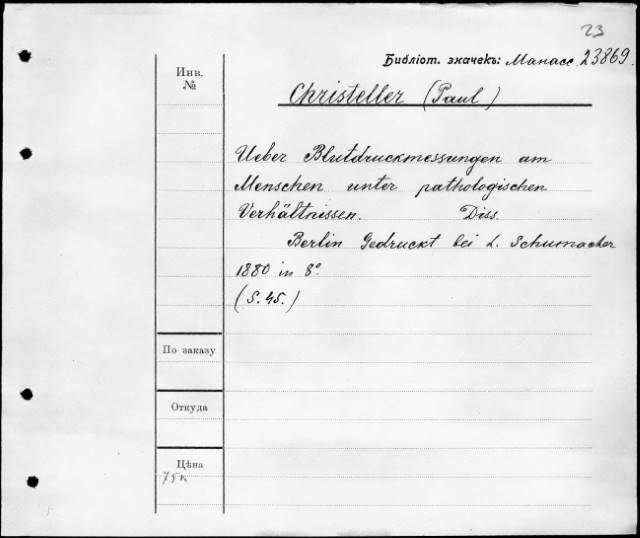 23
Библіот. значекъ: Манасс. 23869.
Инв.
№
Christeller (Paul)
Ueber Blutdruckmessungen am
Menschen unter pathologischen
Verhältnissen. Diss.
Berlin Gedruckt bei L. Schumacher
1880 in 8°
(S. 45.)
По заказу
Откуда
Цѣна
75к